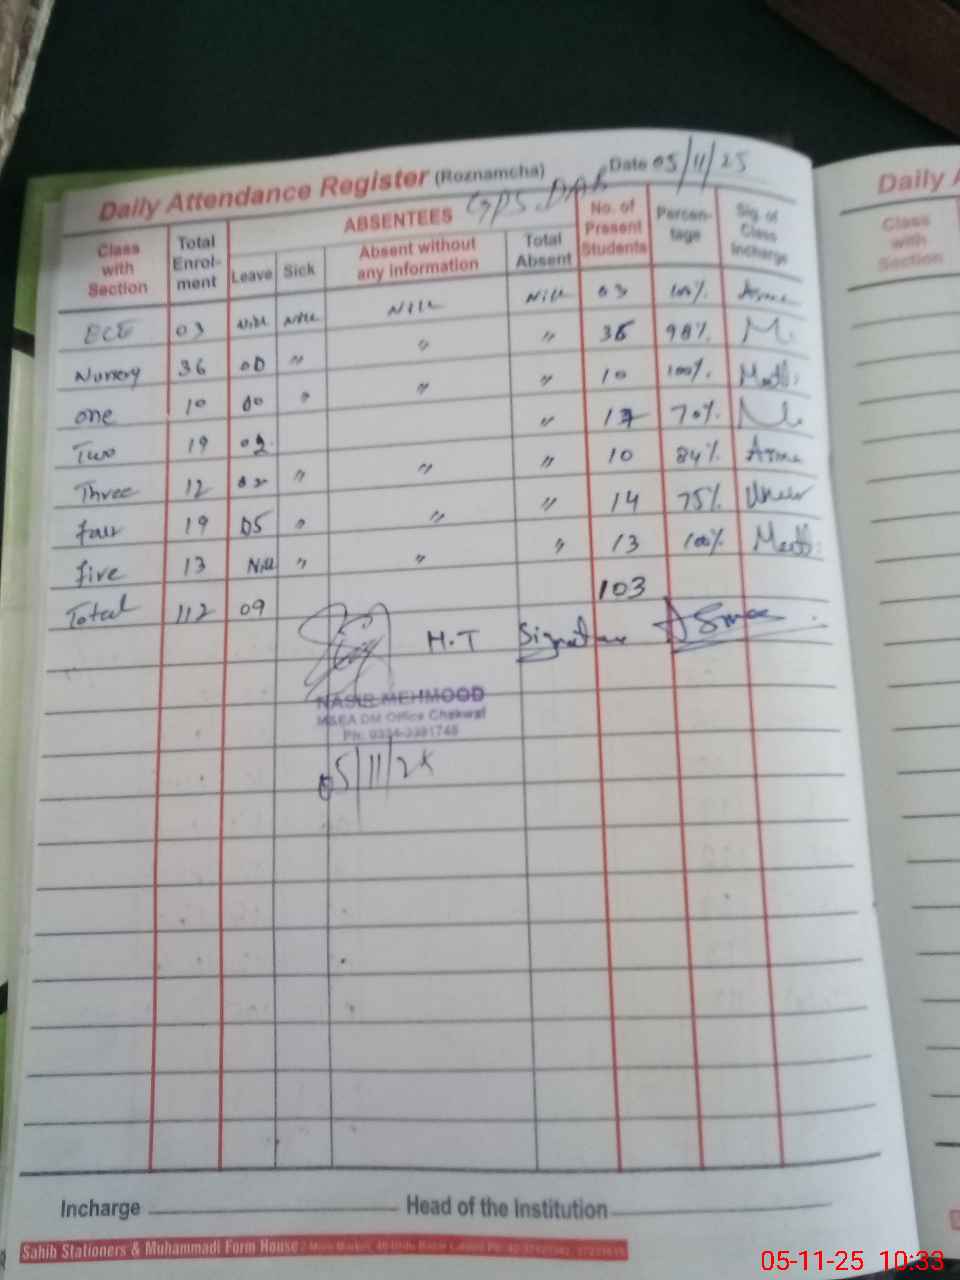 Daily Attendance Register (Roznamcha) Date 05/11/25
GPS.DAB
Class with Section | Total Enrol-ment | ABSENTEES | No. of Present Students | Percen-tage | Sig. of Class Incharge
Leave | Sick | Absent without any information | Total Absent
ECE 03 Nill Nill Nill Nill 03 100% Asma
Nursery 36 00 " " " 36 98% M.
one 10 00 " " " 10 100%
Two 19 02 " 70%
Three 12 02 " " " 10 84% Asma
four 19 05 " " " 14 75%
five 13 Nill " " " 13 100%
Total 112 09 103
H.T Signature Asmaa
NASIR MEHMOOD
MSEA DM Office Chakwal
05/11/25
Incharge Head of the Institution
Sahib Stationers & Muhammadi Form House
05-11-25 10:33
Daily
Class with Section